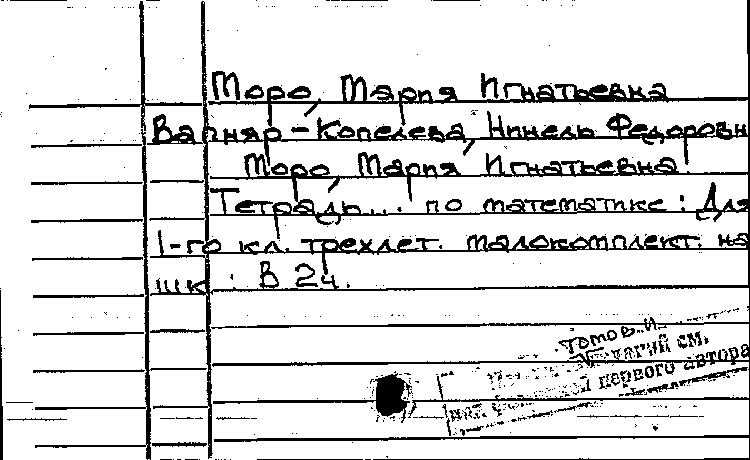 Моро, Мария Игнатьевна
Вапняр-Копелева, Нинель Федоровн
Моро, Мария Игнатьевна.
Тетрадь... по математике: Для
1-го кл. трехлет. малокомплект. на
шк : В 2ч.
томов и
см.
под первого автора